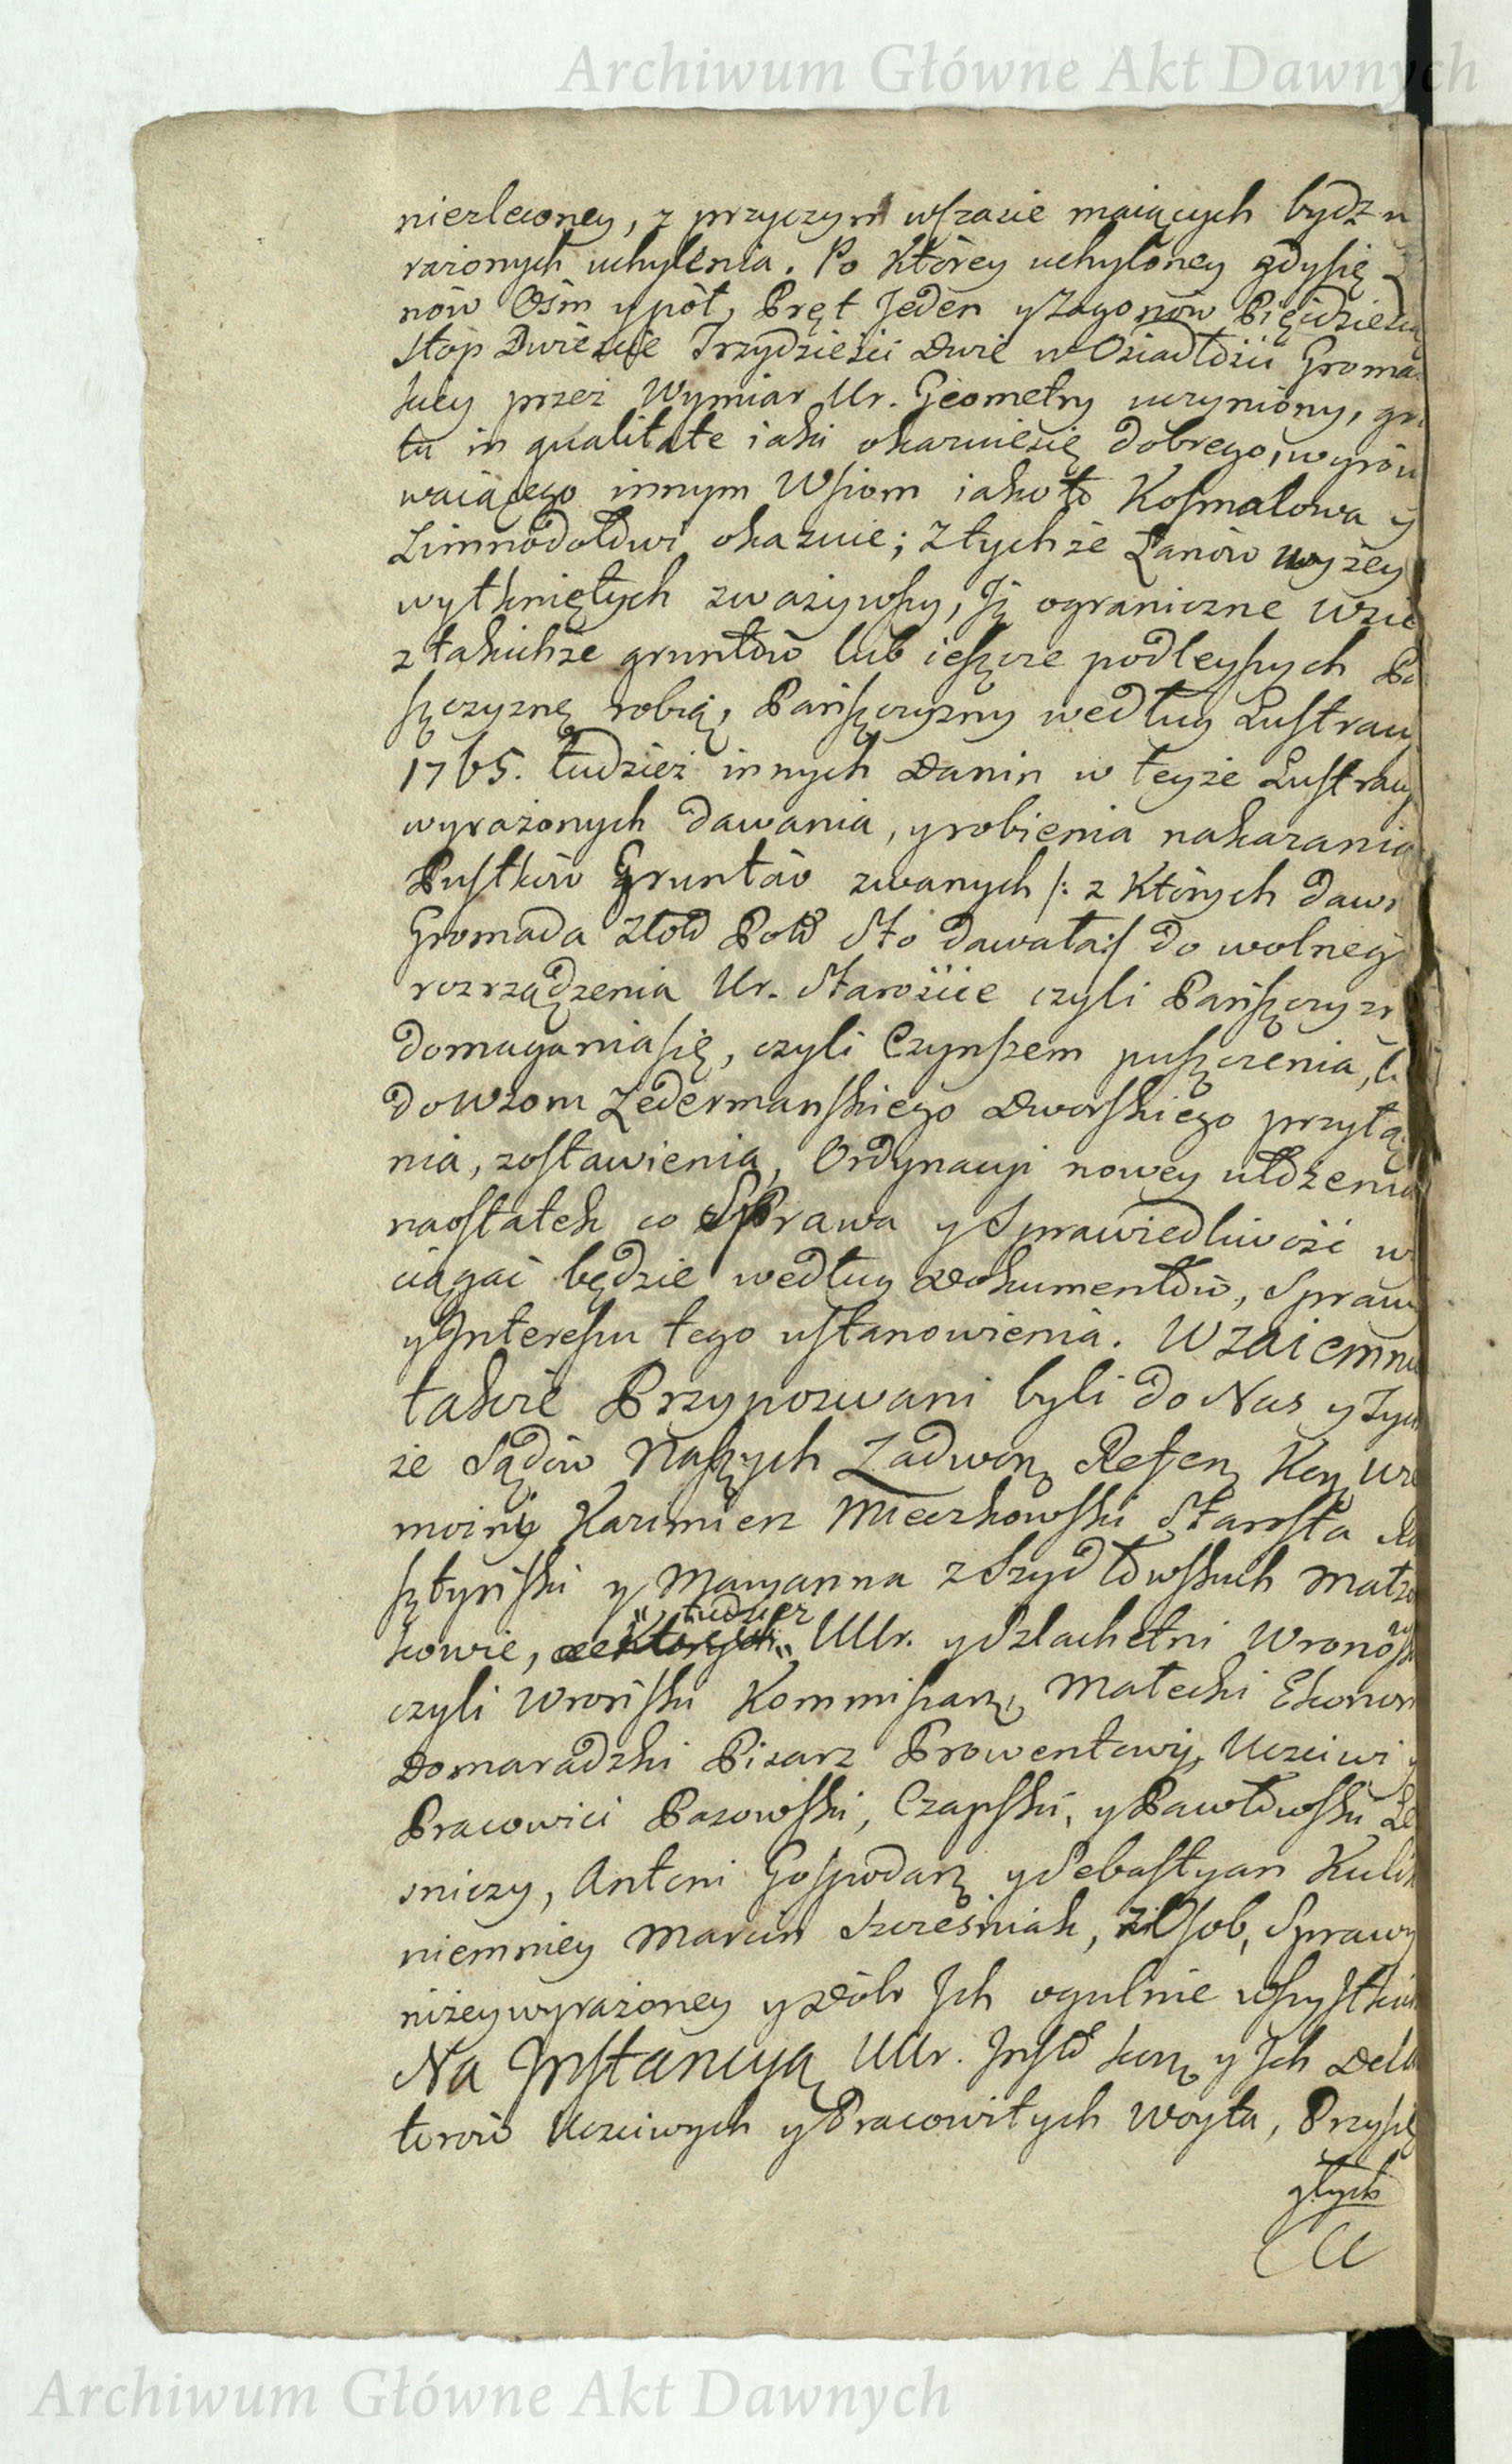 Archiwum Główne Akt Dawnych
niezleconey, z przyczyn wszasie maiących bydz w
rażonych uchylenia. Po którey uchyloney gdysię
nów Ośm y pół, Pręt Jeden y Zagonów Pięćdziesią
Stop Dwieście Trzydzieści Dwie w Osiadłości Groma
skiey przez Wymiar Ur. Geometry uczyniony, gr
tu in qualitate iaki okazuiesię dobrego, wyrów
waiącego innym Wsiom iakoto Kosmalowa y
Zimnodołowi okazuie; Ztychże Łanów wyżey
wytkniętych zważywszy, Jż ograniczne Wsie
ztakichże gruntów lub ieszcze podleyszych Pa
szczyznę robią, Pańszczyzny według Lustracy
1765. tudzież innych Danin w teyże Lustracy
wyrażonych dawania, y robienia nakazania
Pustków Gruntów zwanych /: z których daw
Gromada Złotd Pold Sto dawała :/ do wolneg
rozrządzenia Ur. Staroście czyli Pańszczyzn
domagania się, czyli Czynszem puszczenia,
do Wzoru Zedermanskiego Dworskiego przyłą
nia, zostawienia, Ordynacyi nowey ułożenia
naostatek co Prawa y Sprawiedliwość w
ciągać będzie według Dokumentów, Sprawy
y Interessu tego ustanowienia. Wzaiemnie
takoże Przypozwani byli do Nas y Tych
że Sądów Naszych Zadwor. Refen. Kor. Wie
możni Kazimierz Mieczkowski Starosta Ra
sztyński y Maryanna z Szydłowskich Małżo
kowie, tudzież UUr. y Szlachetni Wronows
czyli Wroński Kommissarz, Małecki Ekonom
Domaradzki Pisarz Prowentowy, Uczciwi y
Pracowici Pasowski, Czapski, y Pawłowski Le
sniczy, Antoni Gospodarz y Sebastyan Kulik
niemniey Marcin Szcześniak, z Osob, Sprawy
niżey wyrażoney y Dóbr Jch ogulnie wszystkich
Na Jnstancyą UUr. Jnstd korz y Jch Dela
torów Uczciwych y Pracowitych Woyta, Przysię
głych
Archiwum Główne Akt Dawnych